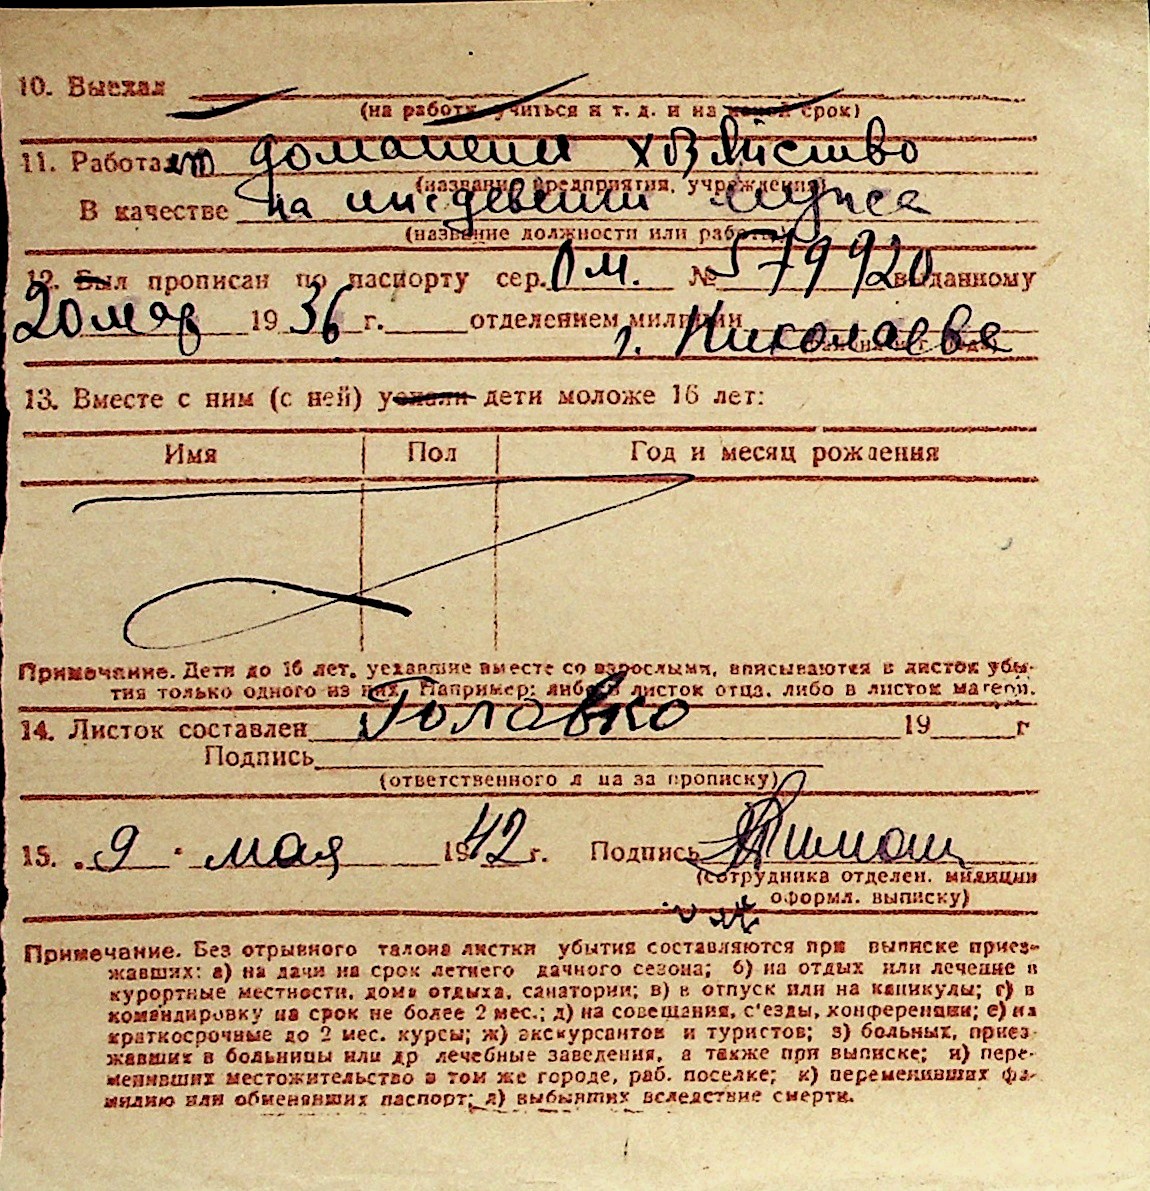 10. Выехал
(на работу учиться и т. д. и на какой срок)
11. Работает домашени хозяйство
(название предприятия, учреждения)
В качестве на иждевении мужа
(название должности или работы)
12. Был прописан по паспорту сер. ОМ. № 579920 выданному
20 мар 1936 г. отделением милиции г. Николаева
13. Вместе с ним (с ней) уехали дети моложе 16 лет:
Имя Пол Год и месяц рождения
Примечание. Дети до 16 лет, уехавшие вместе со взрослыми, вписываются в листок убы-
тия только одного из них. Например: либо в листок отца, либо в листок матери.
14. Листок составлен Головко 19 г
Подпись
(ответственного лица за прописку)
15. „9" мая 1942 г. Подпись
(сотрудника отделен. милиции
оформл. выписку)
Примечание. Без отрывного талона листки убытия составляются при выписке приез-
жавших: а) на дачи на срок летнего дачного сезона; б) на отдых или лечение в
курортные местности, дома отдыха, санатории; в) в отпуск или на каникулы; г) в
командировку на срок не более 2 мес.; д) на совещания, с'езды, конференции; е) на
краткосрочные до 2 мес. курсы; ж) экскурсантов и туристов; з) больных, приез-
жавших в больницы или др лечебные заведения, а также при выписке; и) пере-
менивших местожительство в том же городе, раб. поселке; к) переменивших фа-
милию или обменявших паспорт; л) выбывших вследствие смерти.